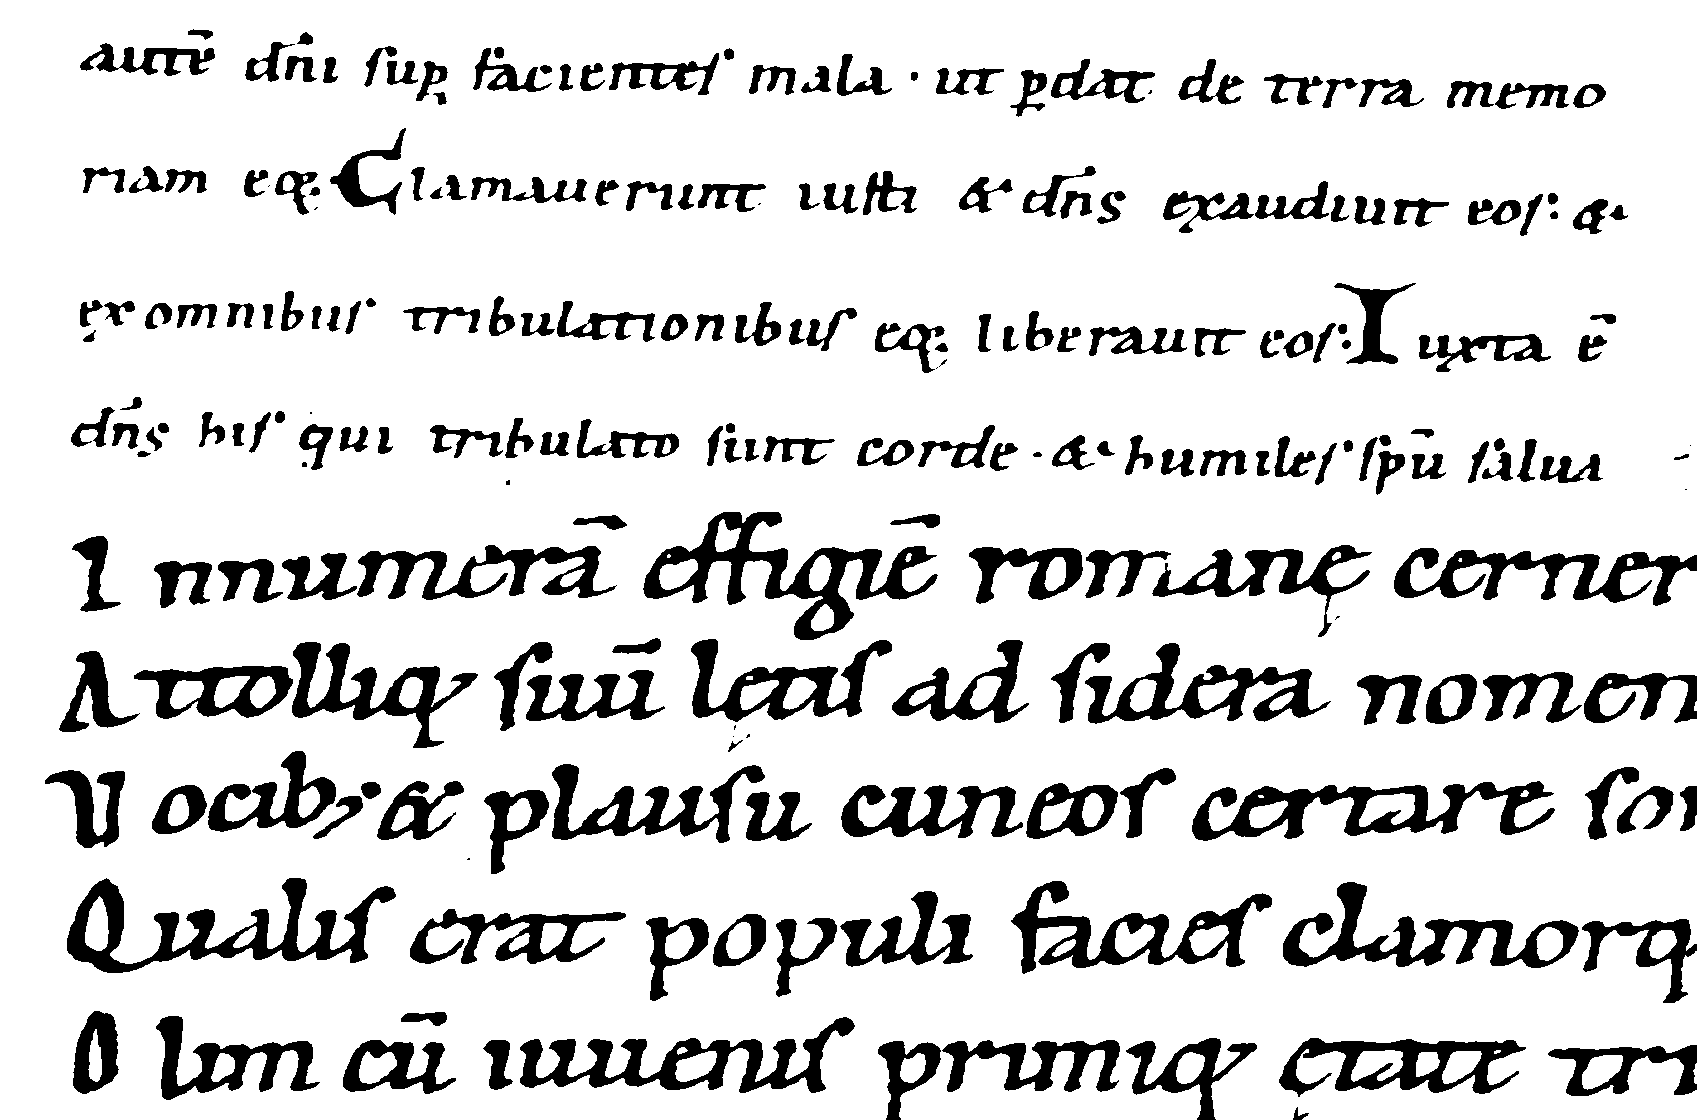 autē dn̄i suꝑ facientes mala · ut ꝑdat de terra memo
riam eoꝝ. Clamauerunt iusti & dn̄s exaudiuit eos: &
ex omnibus tribulationibus eoꝝ. liberauit eos: Iuxta ē
dn̄s his qui tribulato sunt corde · & humiles sp̄u salua
Innumerā effigiē romanę cerner
Attolliq; suū lętis ad sidera nomen
Vocib; & plausu cuneos certare son
Qualis erat populi facies clamorq
Olim cū iuuenis primiq; ętate tri